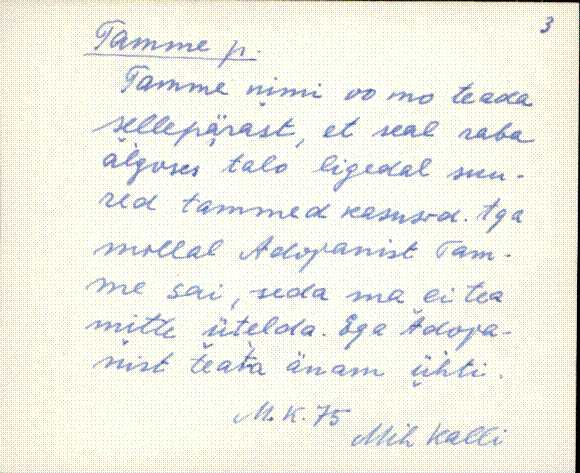 3
Tamme p.
Tamme nimi oo mo teada
sellepärast, et seal raba
älguses talo ligedal suu-
red tammed kasusod. Aga
mollal Adopanist Tam-
me sai, seda ma ei tea
mitte ütelda. Ega Adopa-
nist teata änam ühti.
M.K. 75
Mih Kalli